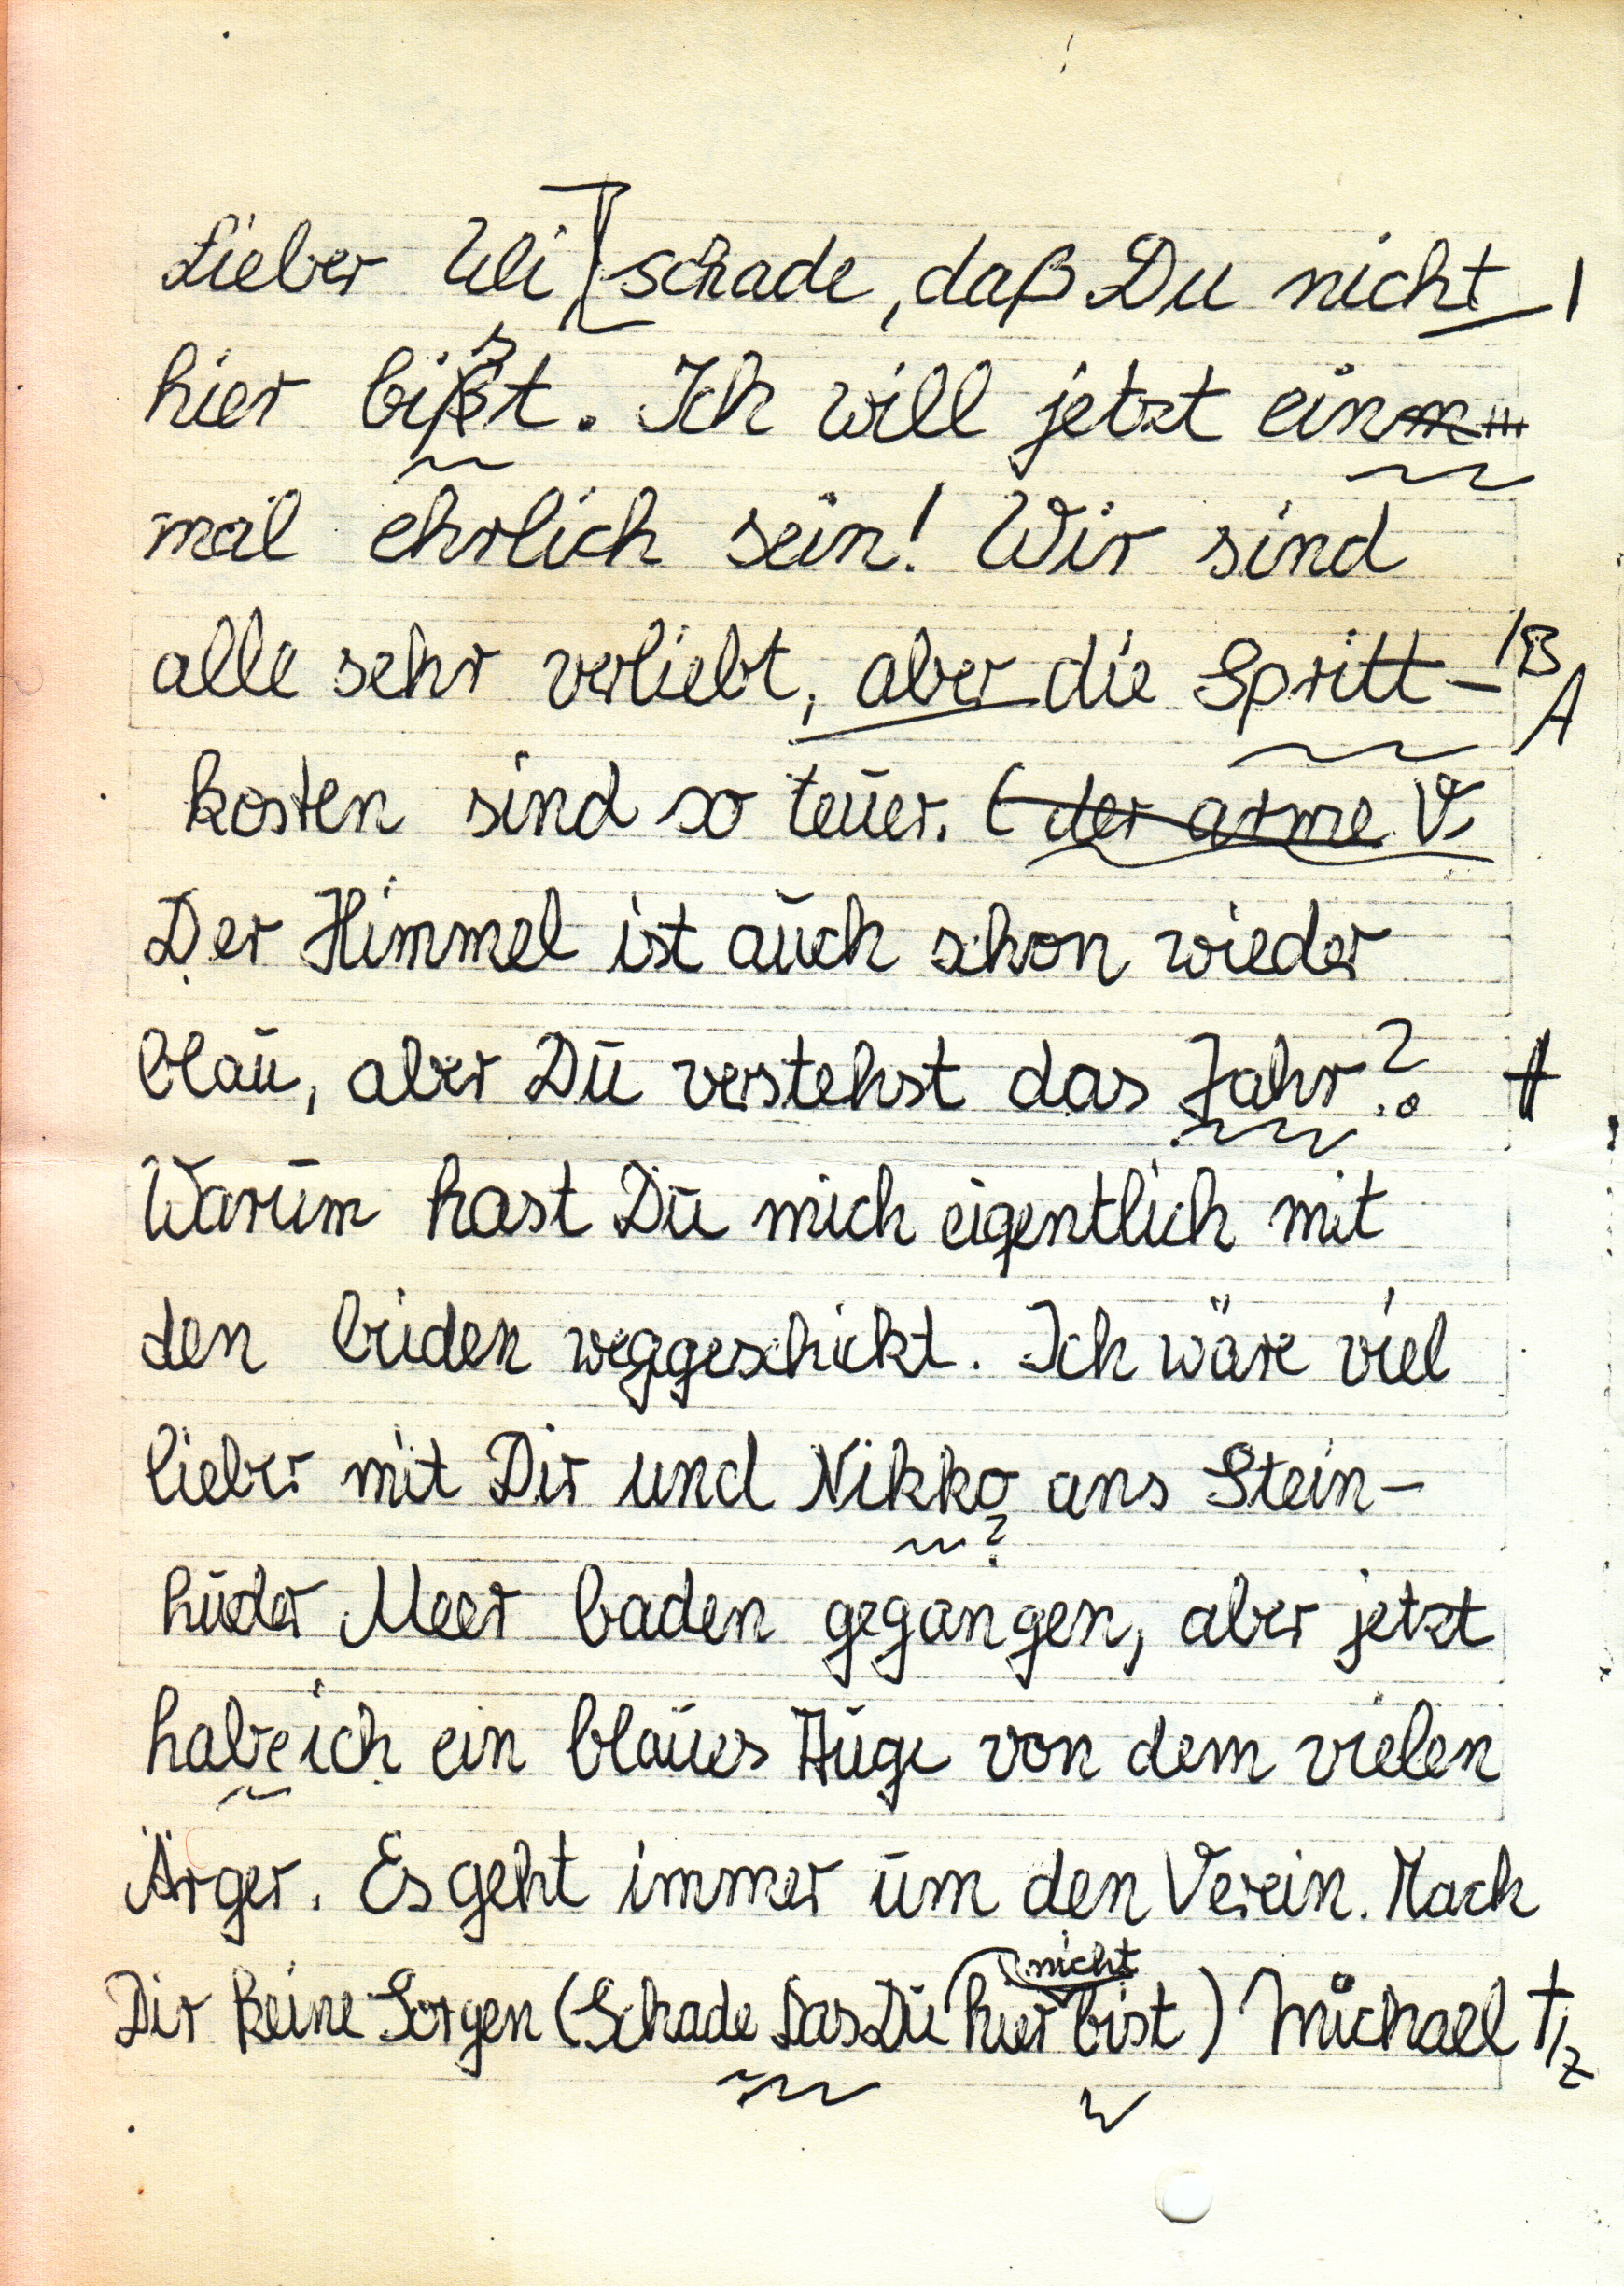 Lieber Uli, schade, daß Du nicht
hier bist. Ich will jetzt ein
mal ehrlich sein! Wir sind
alle sehr verliebt, aber die Spritt-
kosten sind so teuer. (der arme V.
Der Himmel ist auch schon wieder
blau, aber Du verstehst das Jahr?
Warum hast Du mich eigentlich mit
den beiden weggeschickt. Ich wäre viel
lieber mit Dir und Nikko ans Stein-
huder Meer baden gegangen, aber jetzt
habe ich ein blaues Auge von dem vielen
Ärger. Es geht immer um den Verein. Mach
Dir keine Sorgen (Schade Das Du hier nicht bist) Michael